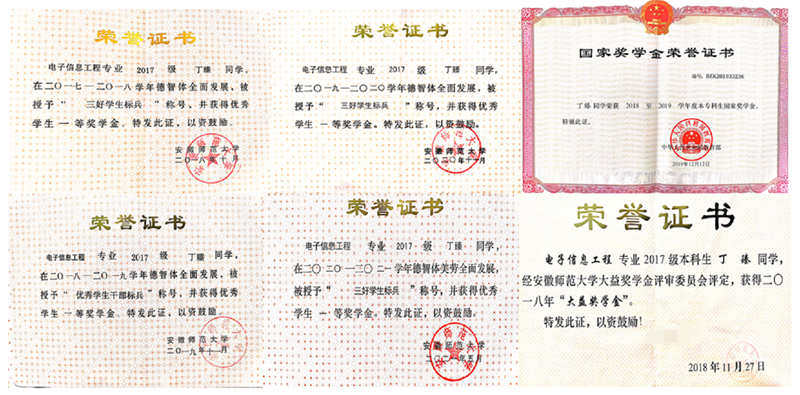 荣誉证书
电子信息工程 专业 2017 级 丁臻 同学,
在二〇一七-二〇一八学年德智体全面发展, 被
授予“ 三好学生标兵 ”称号, 并获得优秀
学生 一 等奖学金。特发此证, 以资鼓励。
安徽师范大学
二〇一八年十月
荣誉证书
电子信息工程 专业 2017 级 丁臻 同学,
在二〇一九-二〇二〇学年德智体全面发展, 被
授予“ 三好学生标兵 ”称号, 并获得优秀
学生 一 等奖学金。特发此证, 以资鼓励。
安徽师范大学
二〇二〇年十一月
国家奖学金荣誉证书
编号: BZK201933236
丁臻 同学荣获 2018 至 2019 学年度本专科生国家奖学金。
特颁此证。
中华人民共和国教育部
2019年12月12日
荣誉证书
电子信息工程 专业 2017 级 丁臻 同学,
在二〇一八-二〇一九学年德智体全面发展, 被
授予“ 优秀学生干部标兵 ”称号, 并获得优秀
学生 一 等奖学金。特发此证, 以资鼓励。
安徽师范大学
二〇一九年十一月
荣誉证书
电子信息工程 专业 2017 级 丁臻 同学,
在二〇二〇-二〇二一学年德智体美劳全面发展,
被授予“ 三好学生标兵 ”称号, 并获得优秀
学生 一 等奖学金。特发此证, 以资鼓励。
安徽师范大学
二〇二一年五月
荣誉证书
电子信息工程 专业 2017 级本科生 丁 臻 同学,
经安徽师范大学大益奖学金评审委员会评定, 获得二〇
一八年“大益奖学金”。
特发此证, 以资鼓励!
2018 年 11 月 27 日